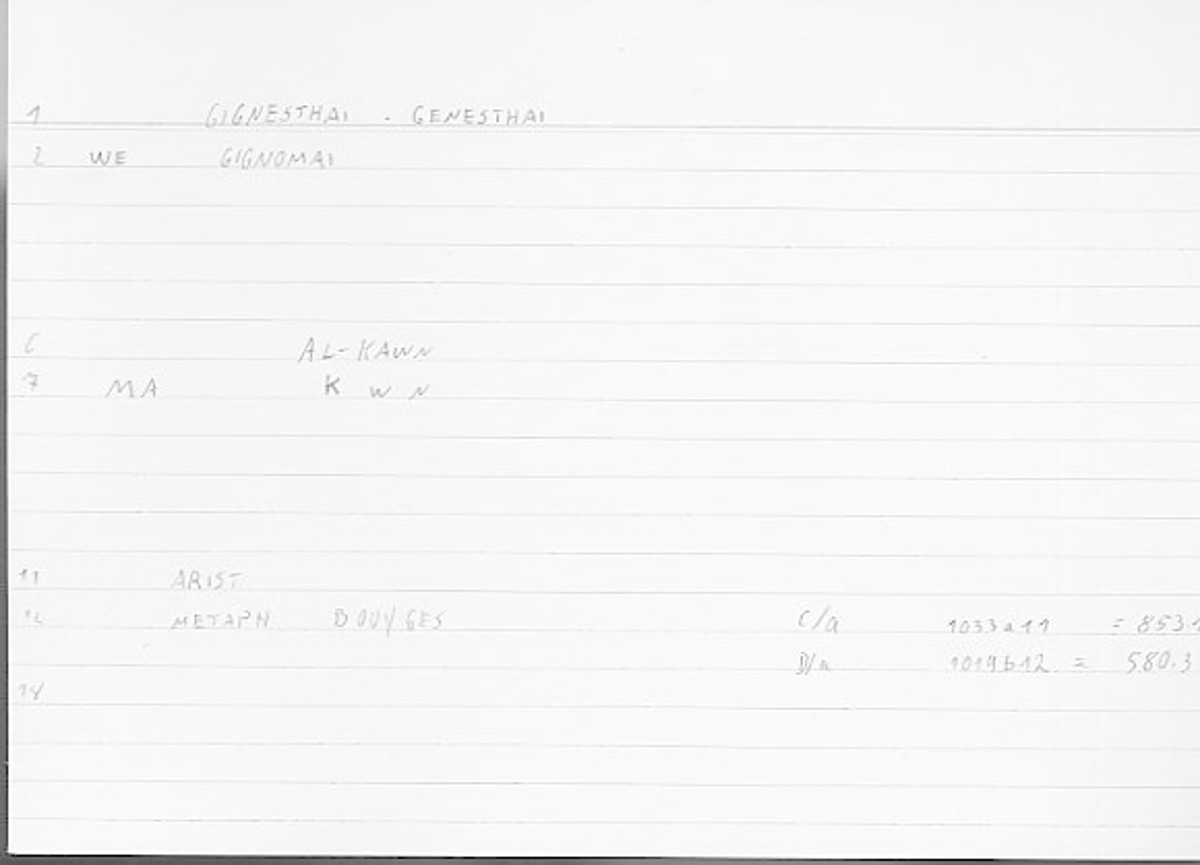 1 GIGNESTHAI . GENESTHAI
2 WE GIGNOMAI
6 AL-KAWN
7 MA K W N
11 ARIST
12 METAPH BOUYGES C/a 1033a11 = 853
D/a 1019b12 = 580.3
14